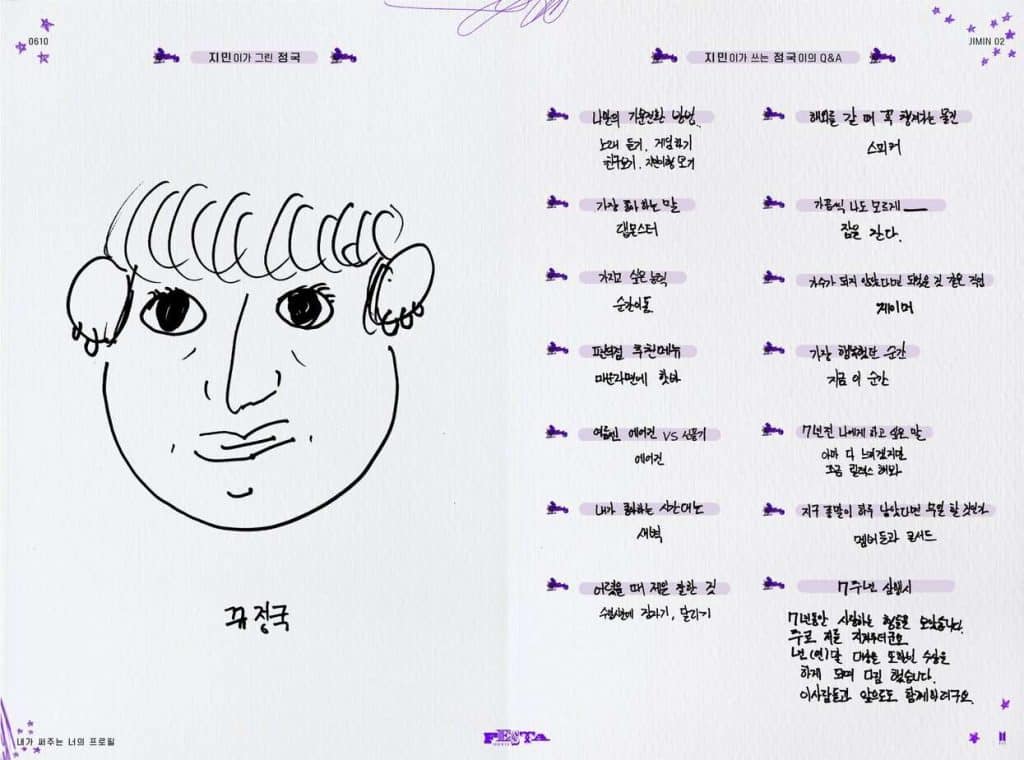 0610
지민이가 그린 정국
뀨 정국
내가 써주는 너의 프로필
JIMIN 02
지민이가 쓰는 정국이의 Q&A
나만의 기분전환 방법
노래 듣기, 게임하기
친구보기, 지민이형 보기
가장 좋아하는 말
랩몬스터
가지고 싶은 능력
순간이동
편의점 추천메뉴
매운라면에 핫바
여름엔 에어컨 VS 선풍기
에어컨
내가 좋아하는 시간대는
새벽
어렸을 때 제일 잘한 것
수업시간에 잠자기, 달리기
해외를 갈 때 꼭 챙겨가는 물건
스피커
가끔씩 나도 모르게
잠을 잔다.
가수가 되지 않았다면 되었을 것 같은 직업
게이머
가장 행복했던 순간
지금 이 순간
7년전 나에게 하고 싶은 말
아마 다 느끼겠지만
조금 릴렉스 해봐
지구 종말이 하루 남았다면 무얼 할 것인가
멤버들과 콘서트
7주년 삼행시
7년동안 시청하는 형들을 보았습니다.
주로 저를 지켜부더군요
년(연)말 대상을 또한번 수상을
하게 되며 다짐 했습니다.
이사람들과 앞으로도 함께하려구요.
FESTA